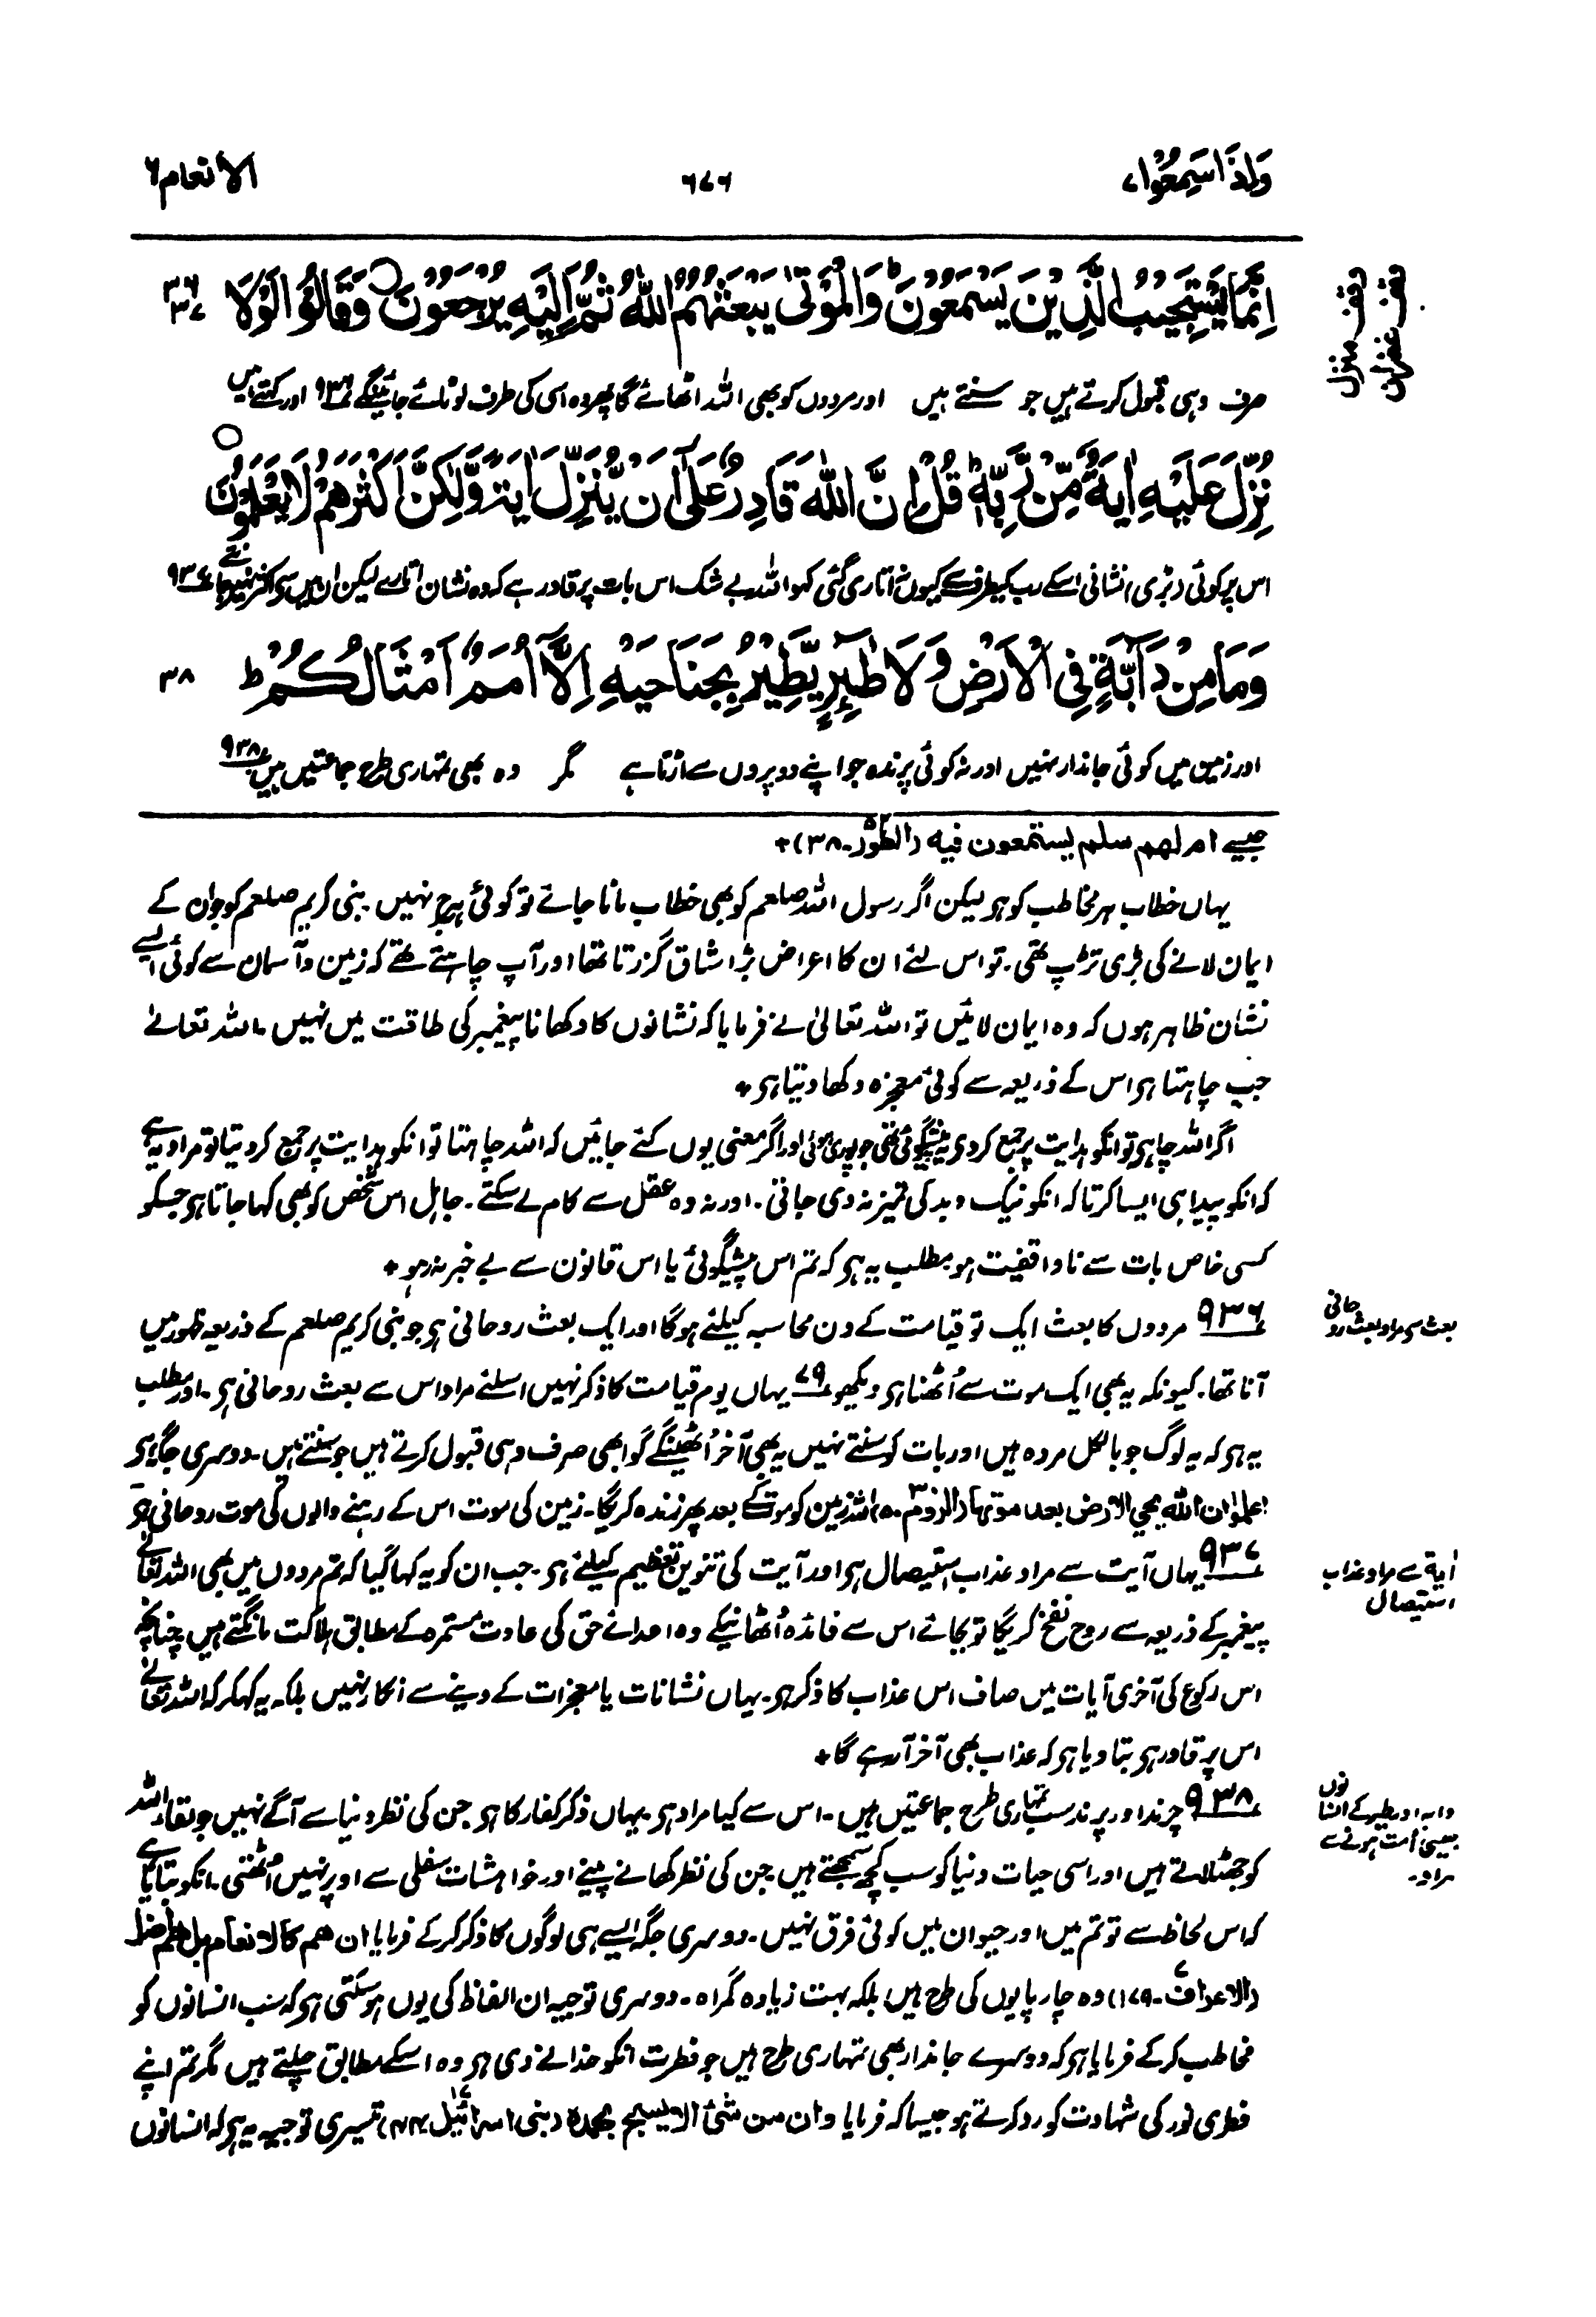 وَاِذَا سَمِعُوْا ۷
۶۷۶
الانعام ۶
اِنَّمَا يَسْتَجِيْبُ الَّذِيْنَ يَسْمَعُوْنَ ؕ وَالْمَوْتٰى يَبْعَثُهُمُ اللّٰهُ ثُمَّ اِلَيْهِ يُرْجَعُوْنَ ○ وَقَالُوْا لَوْلَا
۳۶
۳۷
وقف منزل
وقف غفران
صرف وہی قبول کرتے ہیں جو سنتے ہیں اور مردوں کو بھی اللہ اٹھائے گا پھر وہ اسی کی طرف لوٹائے جائینگے ۹۳۶ اور کہتے ہیں
نُزِّلَ عَلَيْهِ اٰيَةٌ مِّنْ رَّبِّهٖ ؕ قُلْ اِنَّ اللّٰهَ قَادِرٌ عَلٰٓى اَنْ يُّنَزِّلَ اٰيَةً وَّلٰكِنَّ اَكْثَرَهُمْ لَا يَعْلَمُوْنَ ○
اس پر کوئی (بڑی) نشانی اسکے رب کیطرف سے کیوں نہ اتاری گئی کہو اللہ بے شک اس بات پر قادر ہے کہ وہ نشان اتارے لیکن ان میں سے اکثر نہیں جانتے ۹۳۷
وَمَا مِنْ دَآبَّةٍ فِى الْاَرْضِ وَلَا طٰٓئِرٍ يَّطِيْرُ بِجَنَاحَيْهِ اِلَّآ اُمَمٌ اَمْثَالُكُمْ ؕ
۳۸
اور زمین میں کوئی جاندار نہیں اور نہ کوئی پرندہ جو اپنے دو پروں سے اڑتا ہے مگر وہ بھی تمہاری طرح جماعتیں ہیں ۹۳۸
جیسے ام لهم سلم يستمعون فيه (الطور۔۳۸)+
یہاں خطاب ہر مخاطب کو ہے لیکن اگر رسول اللہ صلعم کو بھی خطاب مانا جائے تو کوئی ہرج نہیں۔ نبی کریم صلعم کو جو ان کے
ایمان لانے کی بڑی تڑپ تھی۔ تو اس لئے ان کا اعراض بڑا شاق گزرتا تھا اور آپ چاہتے تھے کہ زمین و آسمان سے کوئی ایسے
نشان ظاہر ہوں کہ وہ ایمان لائیں تو اللہ تعالیٰ نے فرمایا کہ نشانوں کا دکھانا پیغمبر کی طاقت میں نہیں۔ اللہ تعالےٰ
جب چاہتا ہے اس کے ذریعہ سے کوئی معجزہ دکھا دیتا ہے+
اگر اللہ چاہے تو انکو ہدایت پر جمع کردے یہ پیشگوئی تھی جو پوری ہوئی اور اگر معنی یوں کئے جائیں کہ اللہ چاہتا تو انکو ہدایت پر جمع کردیتا تو مراد یہ ہے
کہ انکو پیدا ہی ایسا کرتا کہ انکو نیک و بد کی تمیز نہ دی جاتی۔ اور نہ وہ عقل سے کام لے سکتے۔ جاہل اس شخص کو بھی کہا جاتا ہے جسکو
کسی خاص بات سے ناواقفیت ہو مطلب یہ ہے کہ تم اس پیشگوئی یا اس قانون سے بے خبر نہ رہو+
۹۳۶ مردوں کا بعث ایک تو قیامت کے دن محاسبہ کیلئے ہوگا اور ایک بعث روحانی ہے جو نبی کریم صلعم کے ذریعہ ظہور میں
بعث سے مراد بعث روحانی
آنا تھا۔ کیونکہ یہ بھی ایک موت سے اُٹھنا ہے دیکھو ۷۹ یہاں یوم قیامت کا ذکر نہیں اسلئے مراد اس سے بعث روحانی ہے۔ اور مطلب
یہ ہے کہ یہ لوگ جو بالکل مردہ ہیں اور بات کو سنتے نہیں یہ بھی آخر اُٹھینگے گو ابھی صرف وہی قبول کرتے ہیں جو سنتے ہیں۔ دوسری جگہ ہے
اعلموا ان الله يحي الارض بعد موتها (الروم۔۵۰) اللہ زمین کو موت کے بعد پھر زندہ کریگا۔ زمین کی موت اس کے رہنے والوں کی موت روحانی ہے
۹۳۷ یہاں آیت سے مراد عذاب استیصال ہے اور آیت کی تنوین تعظیم کیلئے ہے۔ جب ان کو یہ کہا گیا کہ تم مردوں میں بھی اللہ تعالےٰ
اٰیة سے مراد عذاب
استیصال
پیغمبر کے ذریعہ سے روح نفخ کریگا تو بجائے اس سے فائدہ اُٹھانیکے وہ اعدائے حق کی عادت مستمرہ کے مطابق ہلاکت مانگتے ہیں چنانچہ
اس رکوع کی آخری آیات میں صاف اس عذاب کا ذکر ہے۔ یہاں نشانات یا معجزات کے دینے سے انکار نہیں بلکہ یہ کہکر کہ اللہ تعالےٰ
اس پر قادر ہے بتا دیا ہے کہ عذاب بھی آخر آرہے گا+
۹۳۸ چرند اور پرند سب تمہاری طرح جماعتیں ہیں۔ اس سے کیا مراد ہے یہاں ذکر کفار کا ہے جن کی نظر دنیا سے آگے نہیں جو لقاء اللہ
دابہ اور طیر کے انسانوں
جیسی اُمت ہونے سے
مراد۔
کو جھٹلاتے ہیں اور اسی حیات دنیا کو سب کچھ سمجھتے ہیں جن کی نظر کھانے پینے اور خواہشات سفلی سے اوپر نہیں اُٹھتی۔ انکو بتایا ہے
کہ اس لحاظ سے تو تم میں اور حیوان میں کوئی فرق نہیں۔ دوسری جگہ ایسے ہی لوگوں کا ذکر کرکے فرمایا ان هم كالانعام بل هم اضل
(الاعراف۔۱۷۹) وہ چارپایوں کی طرح ہیں بلکہ بہت زیادہ گمراہ۔ دوسری توجیہ ان الفاظ کی یوں ہوسکتی ہے کہ سب انسانوں کو
مخاطب کرکے فرمایا ہے کہ دوسرے جاندار بھی تمہاری طرح ہیں جو فطرت انکو خدا نے دی ہے وہ اسکے مطابق چلتے ہیں مگر تم اپنے
فطری نور کی شہادت کو رد کرتے ہو جیسا کہ فرمایا وان من شئ الا يسبح بحمده (بنی اسرائیل۔۴۴) تیسری توجیہ یہ ہے کہ انسانوں